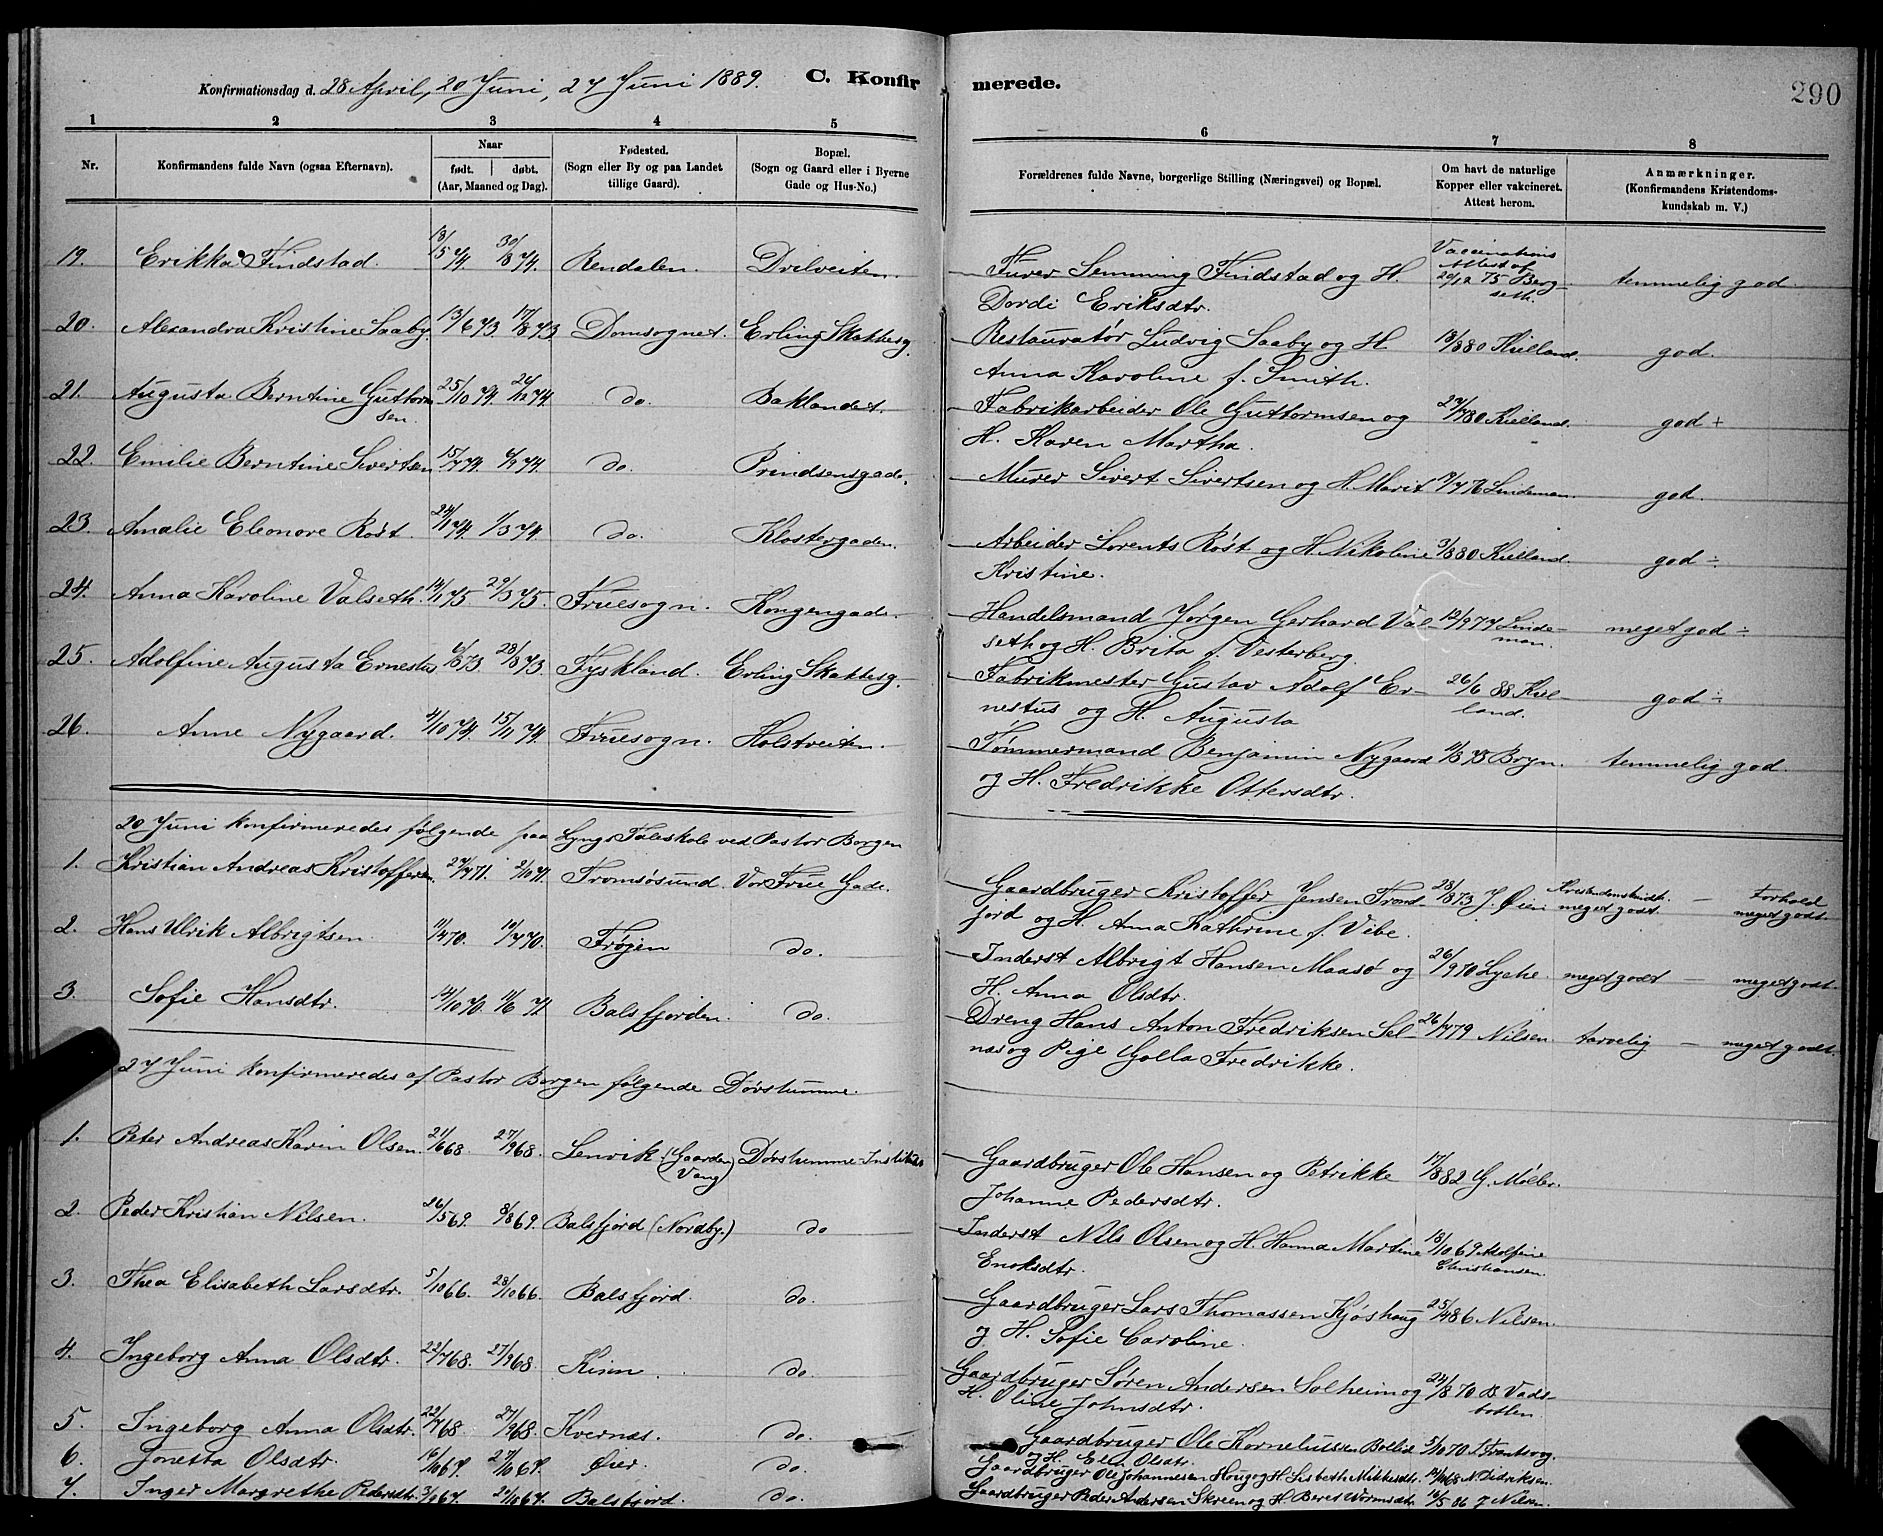 Konfirmationsdag d. 28 April, 20 Juni, 27 Juni 1889. C. Konfirmerede. 290
1 2 3 4 5 6 7 8
Nr. Konfirmandens fulde Navn (ogsaa Efternavn). Naar født. døbt. (Aar, Maaned og Dag). Fødested. (Sogn eller By og paa Landet tillige Gaard). Bopæl. (Sogn og Gaard eller i Byerne Gade og Hus-No.) Forældrenes fulde Navne, borgerlige Stilling (Næringsvei) og Bopæl. Om havt de naturlige Kopper eller vakcineret. Attest herom. Anmærkninger. (Konfirmandens Kristendomskundskab m. V.)
19. Erikka Findstad. 18/5 74. 30/8 74. Rendalen. Drilveiten. Furer Semming Findstad og H. Vaccinations Attest af 20/12 75 Bergseth. temmelig god.
Dordi Eriksdtr.
20. Alexandra Kristine Saaby. 13/6 73. 17/8 73. Domsognet. Erling Skakkesg. Restauratør Ludvig Saaby og H. 18/8 80 Kielland. god.
Anna Karoline f. Smith.
21. Augusta Berntine Guttormsen. 25/10 74. 26/12 74. do. Baklandet. Fabrikarbeider Ole Guttormsen og 27/7 80 Kielland. god +
H. Karen Martha.
22. Emilie Berntine Sivertsen 15/7 74. do. Prindsensgade. Murer Sivert Sivertsen og H. Marit 76 Lindeman. god.
23. Amalie Eleonore Røst. 24/1 74. 1/3 74. do. Klostergaden. Arbeider Lorents Røst og H. Nikoline 3/8 80 Kielland. god ÷
Kristine.
24. Anna Karoline Valseth. 14/1 75. 29/3 75. Fruesogn. Kongengade. Handelsmand Jørgen Gerhard Val- 12/9 77 Lindeman. meget god ÷
seth og H. Brita f. Vesterberg.
25. Adolfine Augusta Ernestus 6/8 73. 28/8 73. Tyskland. Erling Skakkesg. Fabrikmester Gustav Adolf Er- 26/6 88 Kielland. god ÷
nestus og H. Augusta
26. Anne Nygaard. 4/10 74. 15/11 74. Fruesogn. Holstveiten. Tømmermand Benjamin Nygaard 11/8 75 Bryn. temmelig god.
og H. Fredrikke Ottersdtr.
20 Juni konfirmeredes følgende paa Lyngs Taleskole ved Pastor Borgen
1. Kristian Andreas Kristoffersen. 27/7 71. 2/10 71. Tromsøsund. Vor Frue Gade. Gaardbruger Kristoffer Jensen Trond- 28/8 73 J. Øien Kristendomskundsk. meget godt. — Forhold meget godt
jord og H. Anna Kathrine f. Vibe.
2. Hans Ulrik Albrigtsen. 11/4 70. 10/7 70. Frøjen do. Inderst Albrigt Hansen Maasø og 26/9 70 Lyche. meget godt — meget godt.
H. Anna Olsdtr.
3. Sofie Hansdtr. 14/10 70. 11/6 71 Balsfjorden. do. Dreng Hans Anton Fredriksen Sel- 26/7 79 Nilsen tarvelig — meget godt.
nes og Pige Golla Fredrikke.
27 Juni konfirmeredes af Pastor Borgen følgende Døvstumme.
1. Peter Andreas Karin Olsen. 21/6 68. 27/9 68. Lenvik (Gaarden Vang) Døvstumme-Institutet Gaardbruger Ole Hansen og Petrikke 17/8 82 G. Møller.
Johanne Pedersdtr.
2. Peder Kristian Nilsen. 26/5 69. 8/8 69. Balsfjord (Nordby.) do Inderst Nils Olsen og H. Hanna Martine 18/10 69 Adolfine Christiansen.
Enoksdtr.
3. Thea Elisabeth Larsdtr. 5/10 66. 28/10 66. Balsfjord. do. Gaardbruger Lars Thomassen Kjøshaug 25/4 86 Nilsen.
og H. Sofie Caroline.
4. Ingeborg Anna Olsdtr. 22/7 68. 27/9 68. Kinn. do. Gaardbruger Søren Andersen Solheim og 24/8 70
H. Oline Johnsdtr.
5. Ingeborg Anna Olsdtr. 22/7 68. 27/9 68. Kvernæs. do. Gaardbruger Ole Kornelussen 5/10 70
og H. Elen Olsdtr.
6. Jonetta Olsdtr. 16/10 67. 27/10 67. Øier. do. Gaardbruger Ole Johannesen Haug og H. Lisbeth Mikkelsdtr. 68 N. Didriksen.
7. Inger Margrethe Pedersdtr. 3/10 67. 27/10 67. Balsfjord. do. Gaardbruger Peder Andersen Skreen og H. Beret 16/5 86 J. Nilsen.